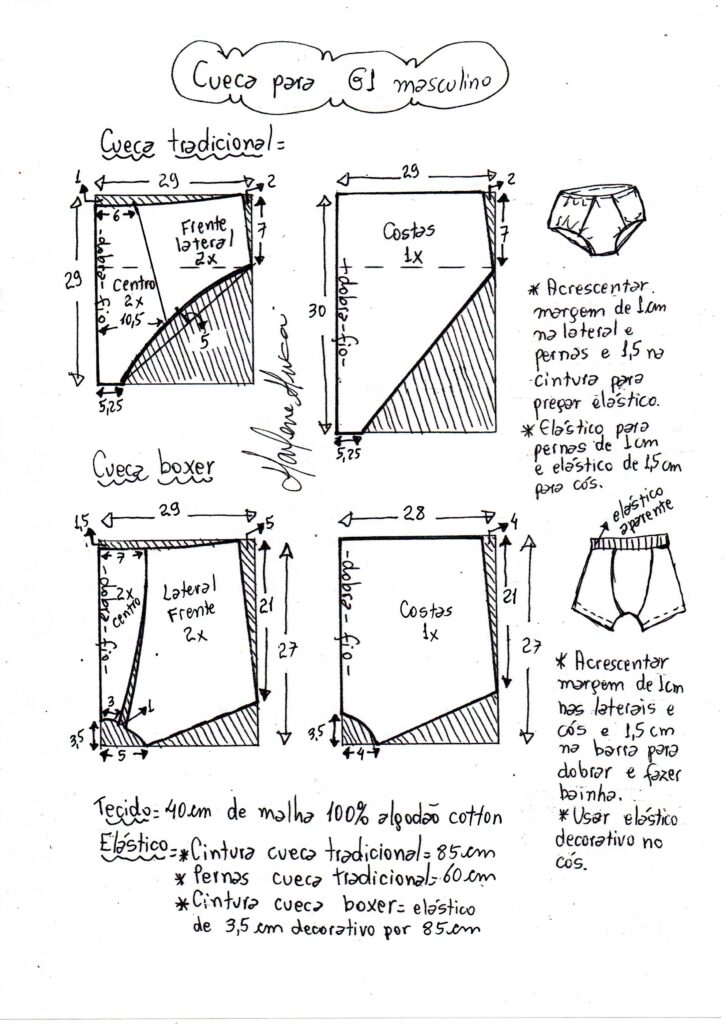 Cueca para G1 masculino
Cueca tradicional=
29
1
2
6
7
29
-dobra-fio-
Frente
lateral
2x
Centro
2x
10,5
5
5,25
29
2
7
30
+dobra-fio-
Costas
1x
5,25
Marlene Mukai
* Acrescentar
margem de 1cm
na lateral e
pernas e 1,5 na
cintura para
pregar elástico.
* Elástico para
pernas de 1cm
e elástico de 1,5cm
para cós.
Cueca boxer
29
1,5
5
7
-dobra-fio-
2x
centro
Lateral
Frente
2x
21
27
3
1
3,5
5
28
4
-dobra-fio-
Costas
1x
21
27
3,5
4
elástico
aparente
* Acrescentar
margem de 1cm
nas laterais e
cós e 1,5cm
na barra para
dobrar e fazer
bainha.
* Usar elástico
decorativo no
cós.
Tecido= 40cm de malha 100% algodão cotton
Elástico=*Cintura cueca tradicional= 85cm
* Pernas cueca tradicional= 60cm
* Cintura cueca boxer= elástico
de 3,5cm decorativo por 85cm